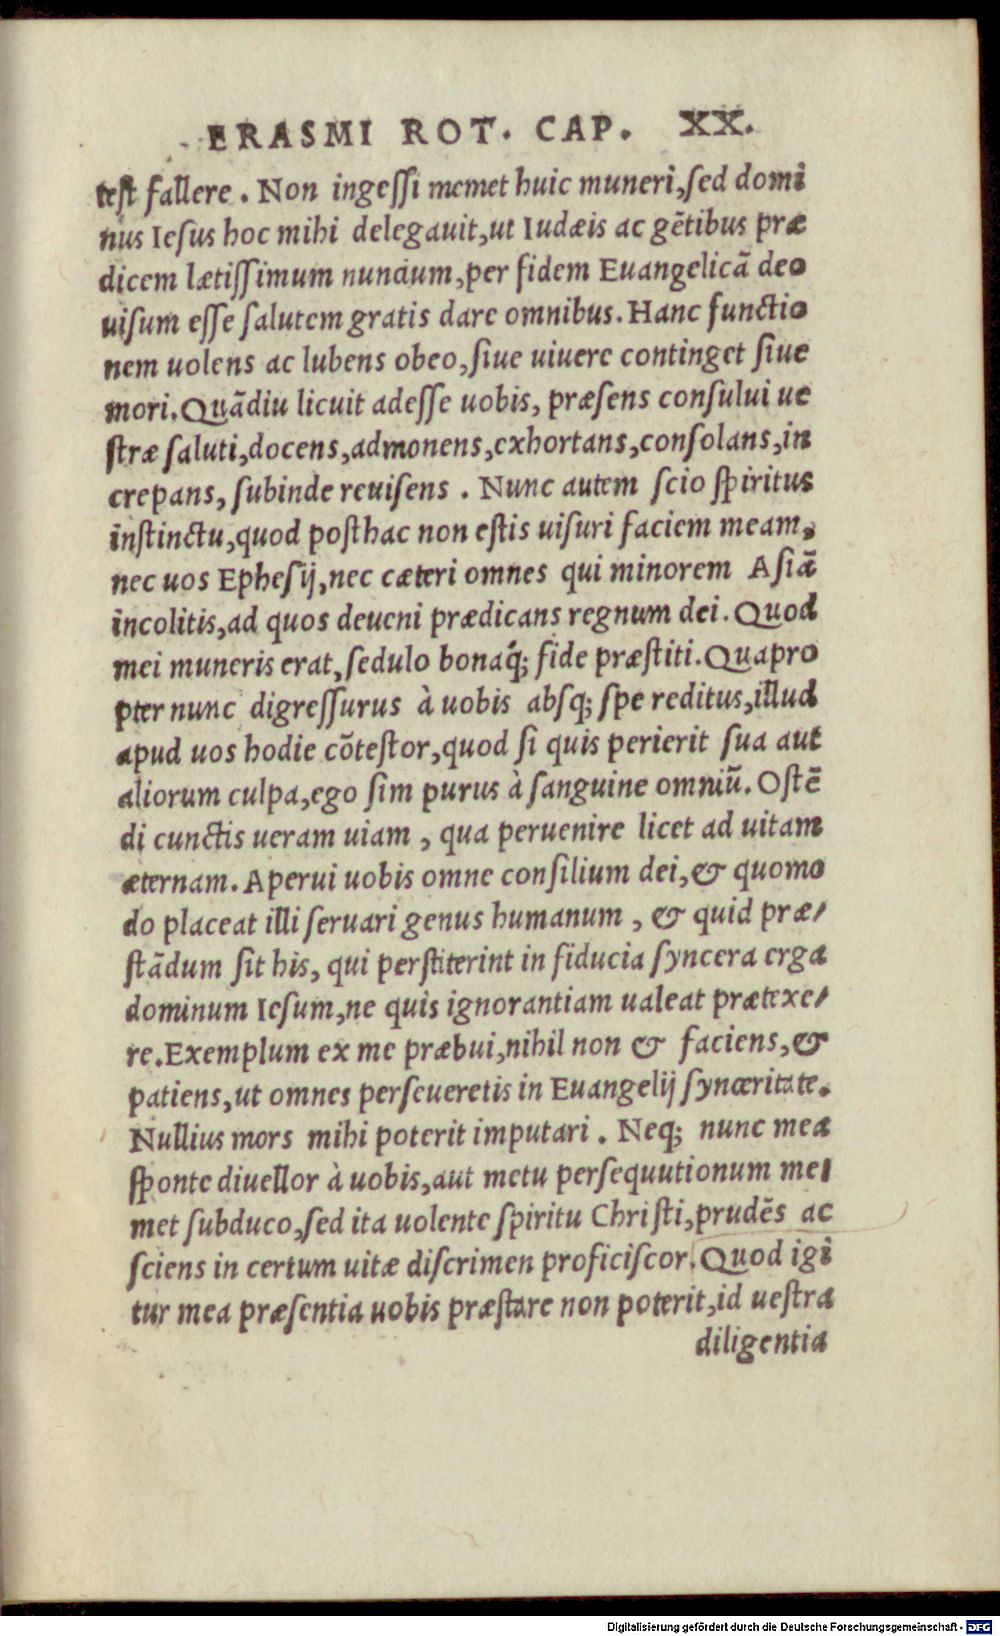 ERASMI ROT. CAP. XX.
test fallere. Non ingessi memet huic muneri, sed domi
nus Iesus hoc mihi delegauit, ut Iudæis ac gẽtibus præ
dicem lætissimum nuncium, per fidem Euangelicã deo
uisum esse salutem gratis dare omnibus. Hanc functio
nem uolens ac lubens obeo, siue uiuere continget siue
mori. Quãdiu licuit adesse uobis, præsens consului ue
stræ saluti, docens, admonens, exhortans, consolans, in
crepans, subinde reuisens. Nunc autem scio spiritus
instinctu, quod posthac non estis uisuri faciem meam,
nec uos Ephesij, nec cæteri omnes qui minorem Asiã
incolitis, ad quos deueni prædicans regnum dei. Quod
mei muneris erat, sedulo bonaq́; fide præstiti. Quapro
pter nunc digressurus à uobis absq; spe reditus, illud
apud uos hodie cõtestor, quod si quis perierit sua aut
aliorum culpa, ego sim purus à sanguine omniũ. Ostẽ
di cunctis ueram uiam, qua peruenire licet ad uitam
æternam. Aperui uobis omne consilium dei, & quomo
do placeat illi seruari genus humanum, & quid præ/
stãdum sit his, qui perstiterint in fiducia syncera erga
dominum Iesum, ne quis ignorantiam ualeat prætexe/
re. Exemplum ex me præbui, nihil non & faciens, &
patiens, ut omnes perseueretis in Euangelij synceritate.
Nullius mors mihi poterit imputari. Neq; nunc mea
sponte diuellor à uobis, aut metu persequutionum me/
met subduco, sed ita uolente spiritu Christi, prudẽs ac
sciens in certum uitæ discrimen proficiscor. Quod igi
tur mea præsentia uobis præstare non poterit, id uestra
diligentia
Digitalisierung gefördert durch die Deutsche Forschungsgemeinschaft - DFG